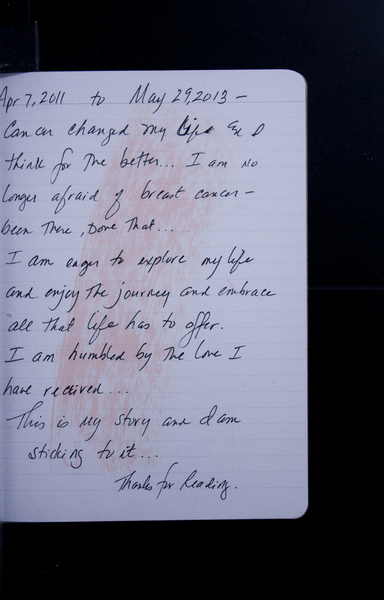 Apr 7, 2011 to May 29, 2013 -
Cancer changed my life & I
think for the better... I am no
longer afraid of breast cancer -
been there, done that...
I am eager to explore my life
and enjoy the journey and embrace
all that life has to offer.
I am humbled by the love I
have received...
This is my story and I am
sticking to it...
Thanks for Reading.